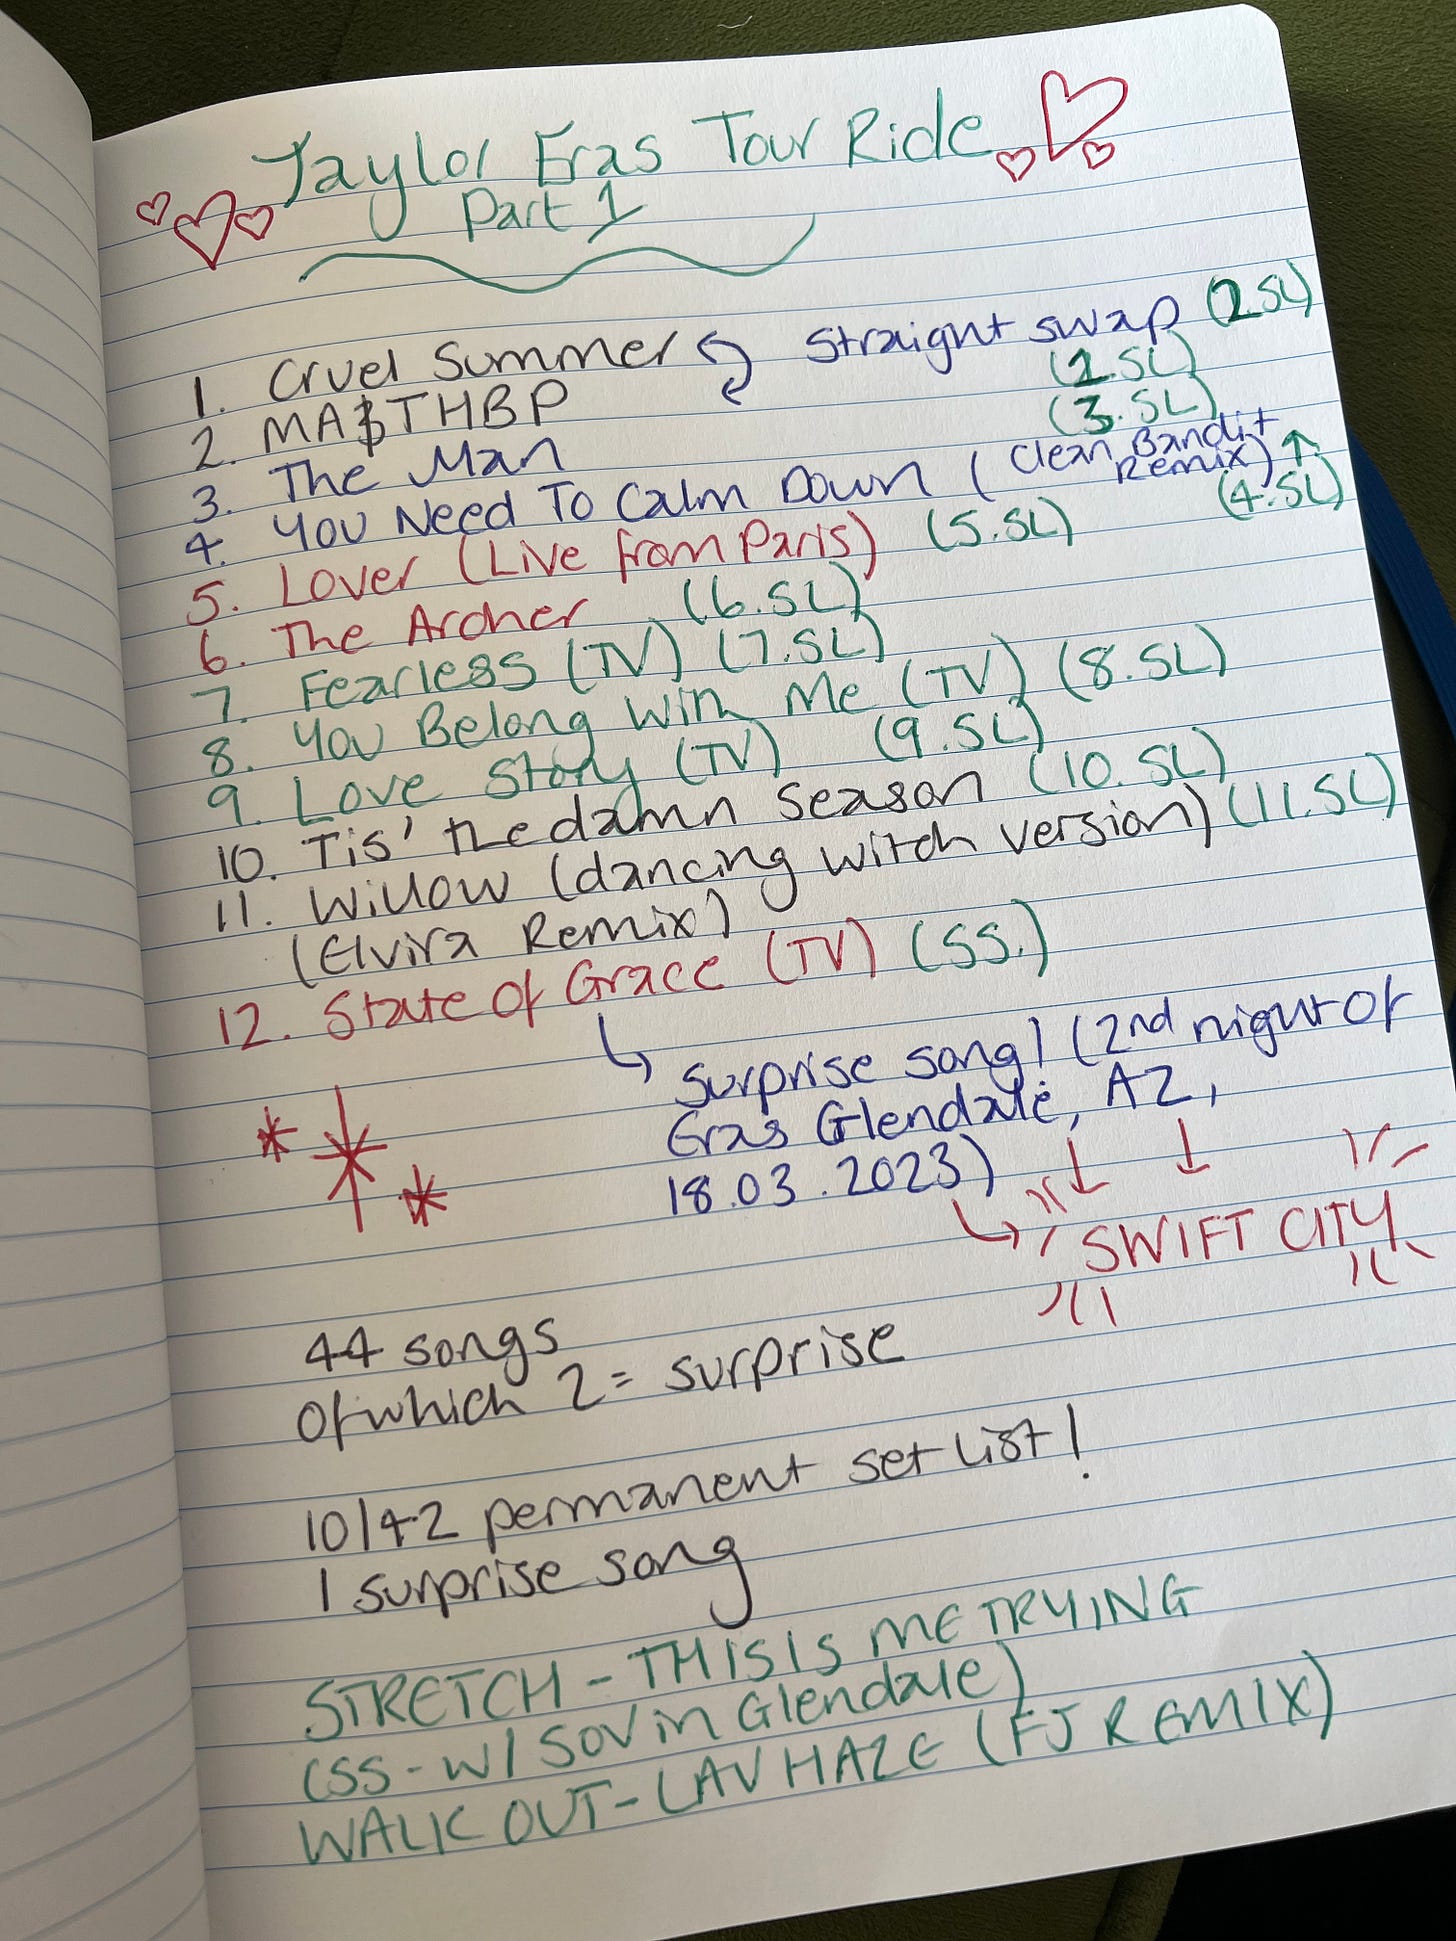 Taylor Eras Tour Ride
Part 1
1. Cruel Summer Straight swap (2.SL)
2. MA$THBP (1.SL)
3. The Man (3.SL)
4. You Need To Calm Down (Clean Bandit Remix) (4.SL)
5. Lover (Live from Paris) (5.SL)
6. The Archer (6.SL)
7. Fearless (TV) (7.SL)
8. You Belong With Me (TV) (8.SL)
9. Love Story (TV) (9.SL)
10. Tis' the damn season (10.SL)
11. Willow (dancing witch version) (11.SL)
(Elvira Remix)
12. State Of Grace (TV) (SS.)
surprise song! (2nd night of
Eras Glendale, AZ,
18.03.2023)
SWIFT CITY
44 songs
of which 2 = surprise
10/42 permanent set list!
1 surprise song
STRETCH - THIS IS ME TRYING
(SS - W/ SOV in Glendale)
WALK OUT - LAV HAZE (FJ REMIX)